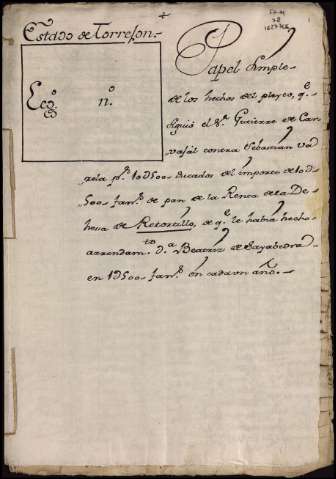 Estado de Torrejon.
Leg.º n.º
Papel simple
de los hechos del pleyto, q.e
siguió el S.r Gutierre de Car
vajál contra Sebastian Va
rela p.r 10U500 ducados del importe de 10U
500 fan.s de pan de la Renta de la De
hesa de Retortillo, de q.e le había hecho
arrendam.to d.a Beatriz de Sayabedra
en 1U500 fan.s en cada un año.